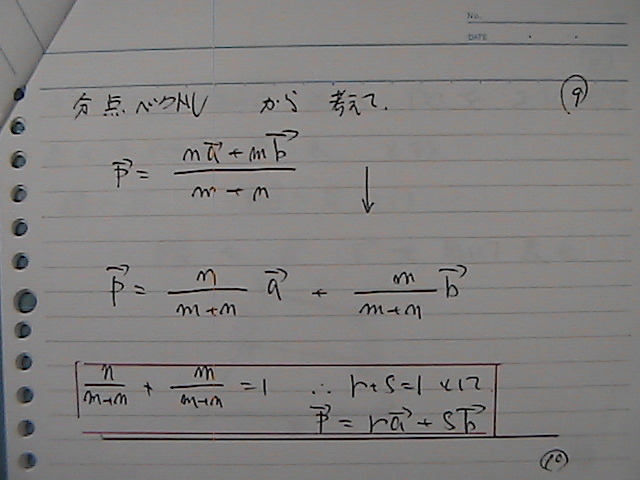 No.
DATE
分点ベクトル から 考えて. ⑨
p⃗ = (na⃗ + mb⃗)/(m + n)
↓
p⃗ = n/(m+n) a⃗ + m/(m+n) b⃗
n/(m+n) + m/(m+n) = 1 ∴ r+s=1 として
p⃗ = ra⃗ + sb⃗
⑩